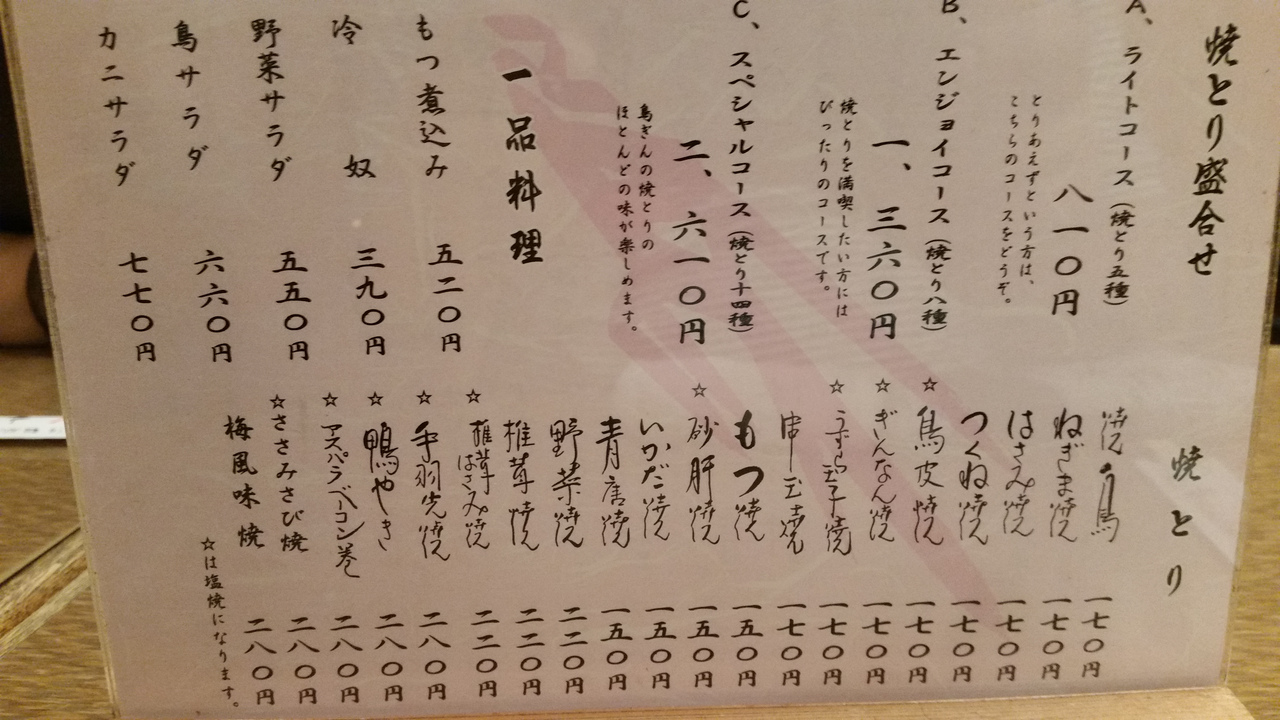 焼とり盛合せ
A、ライトコース（焼とり五種）
八一〇円
とりあえずという方は、
こちらのコースをどうぞ。
B、エンジョイコース（焼とり八種）
一、三六〇円
焼とりを満喫したい方には
ぴったりのコースです。
C、スペシャルコース（焼とり十四種）
二、六一〇円
鳥ぎんの焼とりの
ほとんどの味が楽しめます。
一品料理
もつ煮込み 五二〇円
冷奴 三九〇円
野菜サラダ 五五〇円
鳥サラダ 六六〇円
カニサラダ 七七〇円
焼とり
焼き鳥 一七〇円
ねぎま焼 一七〇円
はさみ焼 一七〇円
つくね焼 一七〇円
☆鳥皮焼 一七〇円
☆ぎんなん焼 一七〇円
☆うずら玉子焼 一七〇円
串玉焼 一七〇円
もつ焼 一五〇円
☆砂肝焼 一五〇円
いかだ焼 一五〇円
青唐焼 一五〇円
野菜焼 二二〇円
椎茸焼 二二〇円
☆椎茸はさみ焼 二二〇円
☆手羽先焼 二八〇円
☆鴨やき 二八〇円
☆アスパラベーコン巻 二八〇円
☆ささみさび焼 二八〇円
梅風味焼 二八〇円
☆は塩焼になります。